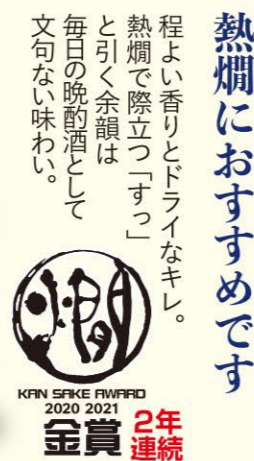 熱燗におすすめです
程よい香りとドライなキレ。
熱燗で際立つ「すっ」
と引く余韻は
毎日の晩酌酒として
文句ない味わい。
燗
KAN SAKE AWARD
2020 2021
金賞
2年
連続